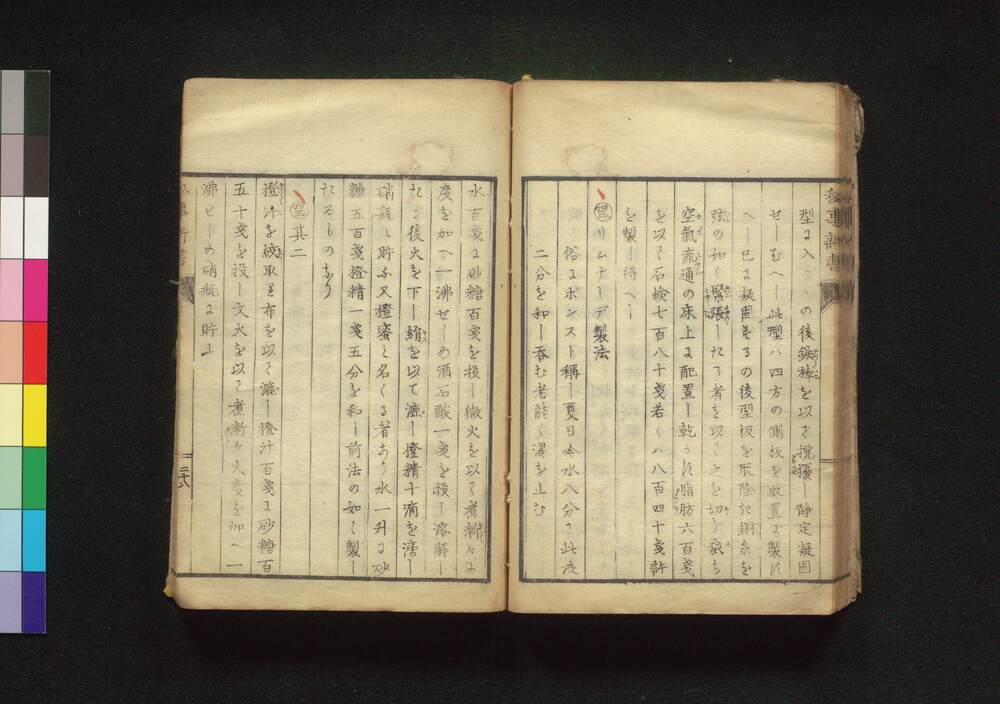 型ニ入ヽの後鍬棒を以て攪擾し静定凝固
せしむへし此型ハ四方の側板を取置ニ製す
へし已ニ凝固するの後型板を取除き銅糸を
弦の如く緊張したる者を以てこを切り截ち
空氣流通の床上ニ配置し乾かす脂肪六百戔
を以て石鹸七百八十戔若くハ八百四十戔許
を製し得へし
リムナーデ製法
俗ニポンスト稱し夏日冷水八分ニ此液
二分を和し呑む老能く渇を止む
水百戔ニ砂糖百戔を投し微火を以て煮漸々ニ
度を加へ一沸せしめ酒石酸一戔を投し溶解し
たる後火を下し絹を以て漉し橙精十滴を滴し
硝瓶ニ貯ふ又橙蜜と名くる者あり水一升ニ砂
糖五百戔橙精一戔五分を和し前法の如く製し
たるものなり
其二
橙汁を絞取里布を以て漉し橙汁百戔ニ砂糖百
五十戔を投し文火を以て煮漸々火度を加へ一
沸せしめ硝瓶ニ貯ふ
二十八